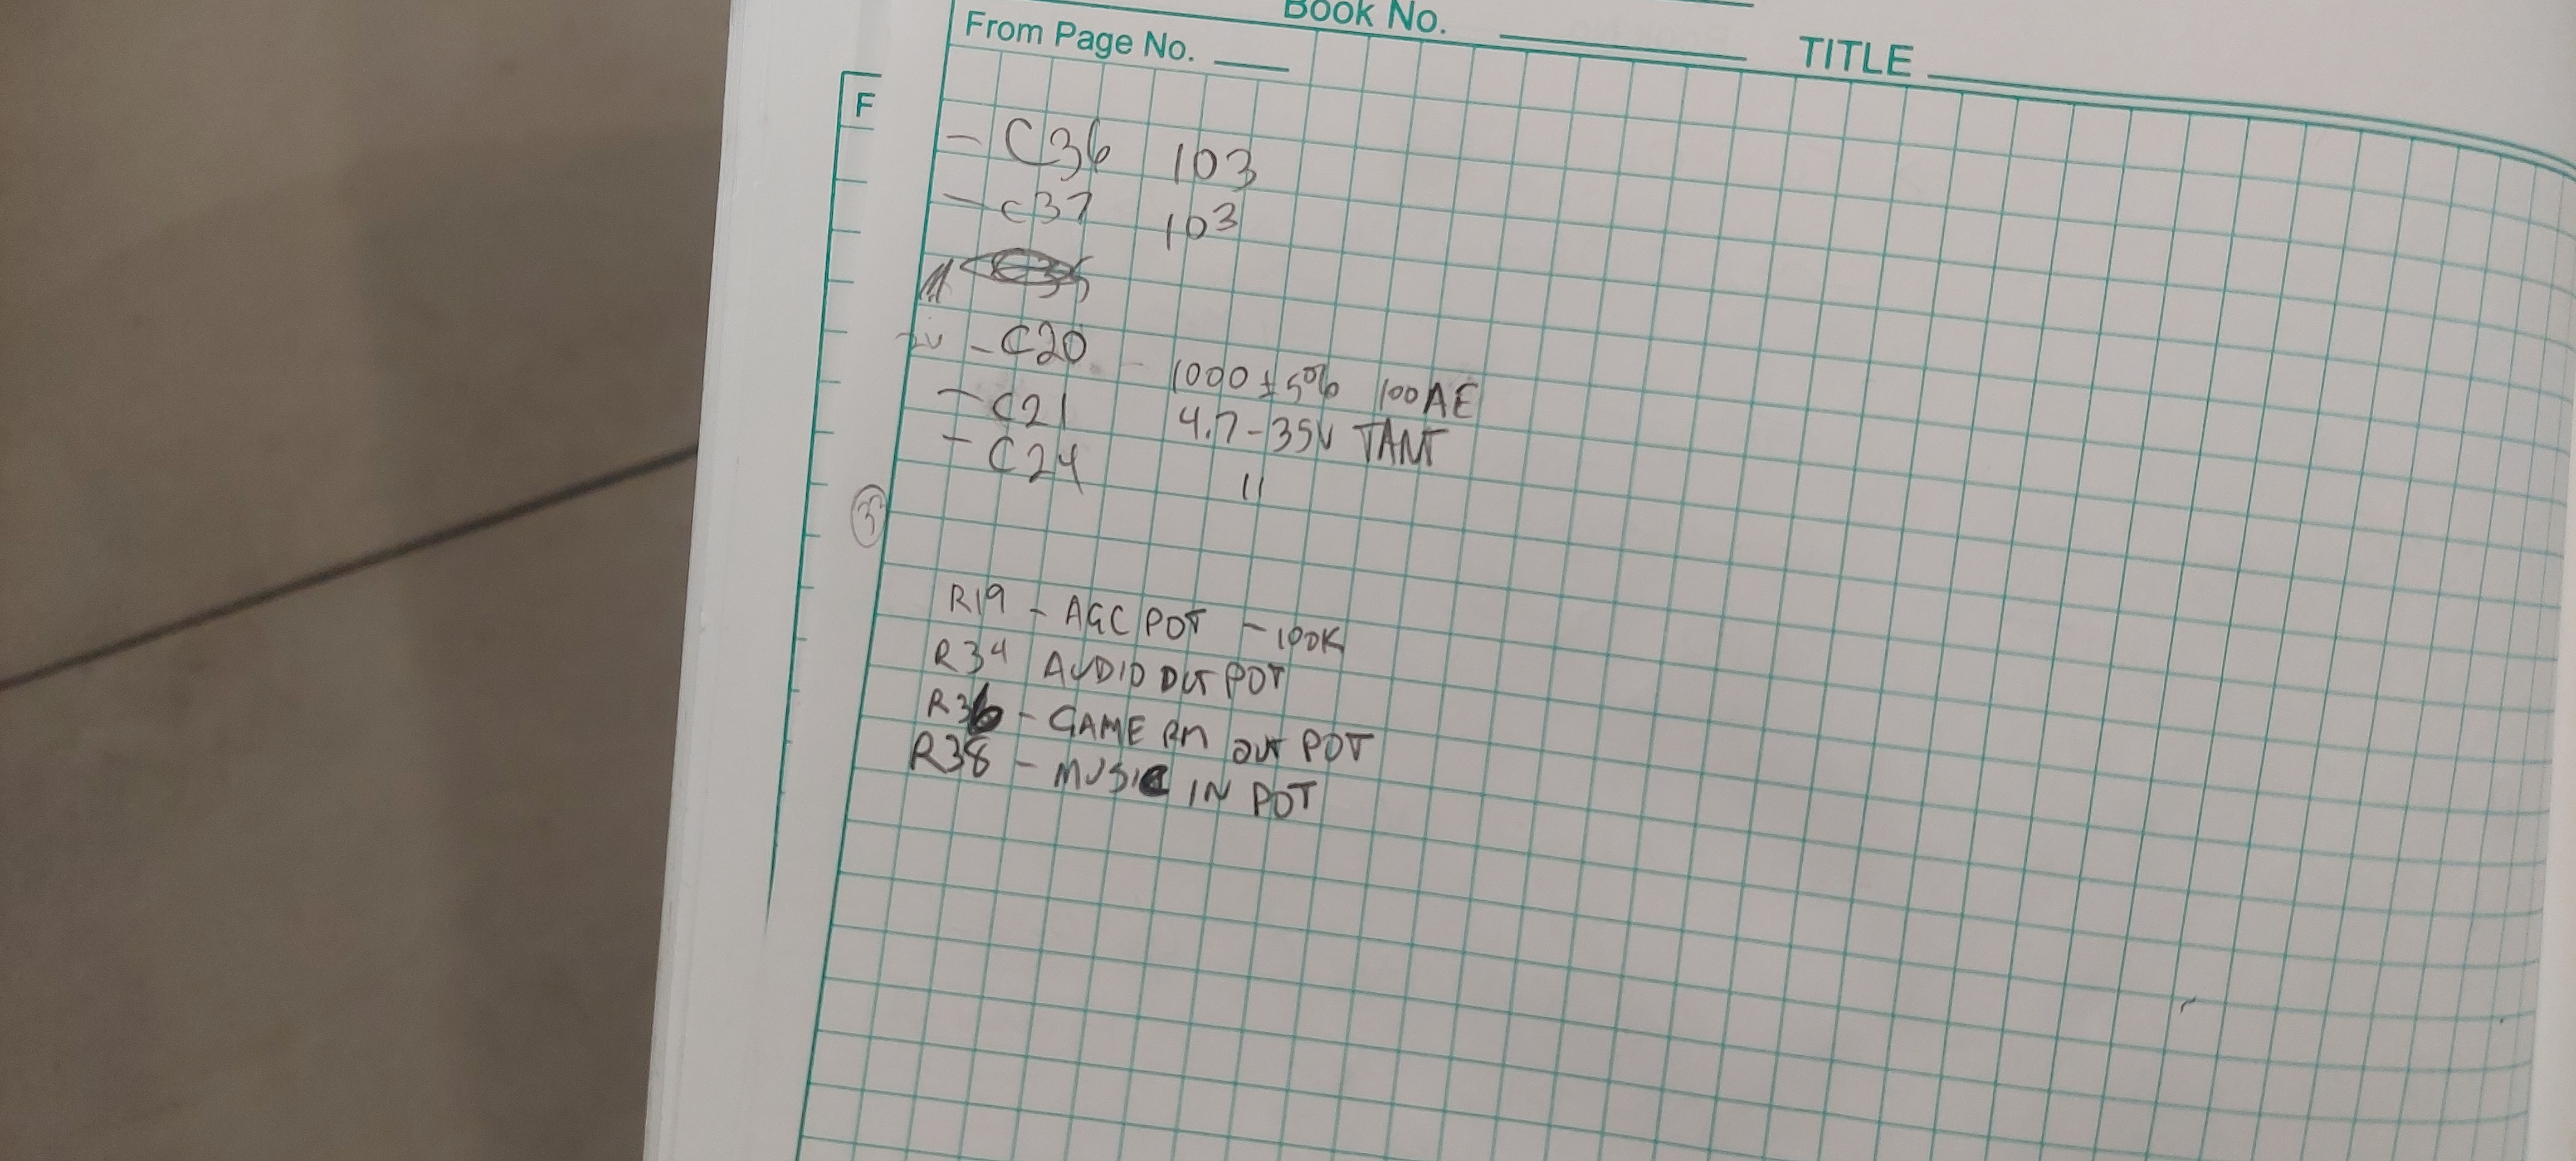 Book No.
From Page No.
TITLE
F
- C36 103
- C37 103
- C20 - 1000 ±5% 100AE
- C21 4.7-35V TANT
- C24 11
3
R19 - AGC POT - 100K
R34 AUDIO OUT POT
R36 - GAME OUT POT
R38 - MUSIC IN POT